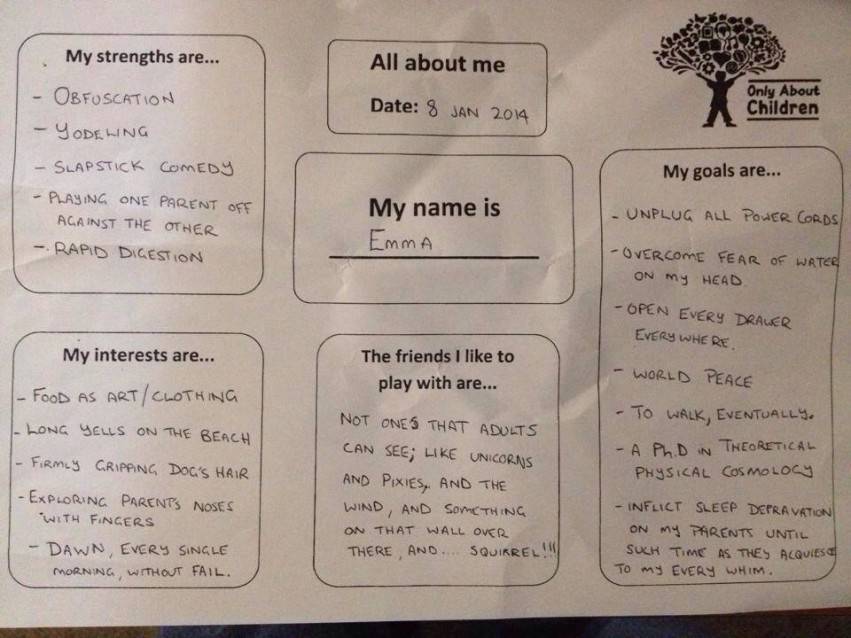 My strengths are...
- OBFUSCATION
- YODELING
- SLAPSTICK COMEDY
- PLAYING ONE PARENT OFF
AGAINST THE OTHER
- RAPID DIGESTION
All about me
Date: 8 JAN 2014
Only About
Children
My name is
EMMA
My goals are...
- UNPLUG ALL POWER CORDS
- OVERCOME FEAR OF WATER
ON MY HEAD
- OPEN EVERY DRAWER
EVERYWHERE.
- WORLD PEACE
- TO WALK, EVENTUALLY.
- A Ph.D IN THEORETICAL
PHYSICAL COSMOLOGY
- INFLICT SLEEP DEPRAVATION
ON MY PARENTS UNTIL
SUCH TIME AS THEY ACQUIESCE
TO MY EVERY WHIM.
My interests are...
- FOOD AS ART/CLOTHING
- LONG YELLS ON THE BEACH
- FIRMLY GRIPPING DOG'S HAIR
- EXPLORING PARENTS NOSES
WITH FINGERS
- DAWN, EVERY SINGLE
MORNING, WITHOUT FAIL.
The friends I like to
play with are...
NOT ONES THAT ADULTS
CAN SEE; LIKE UNICORNS
AND PIXIES, AND THE
WIND, AND SOMETHING
ON THAT WALL OVER
THERE, AND.... SQUIRREL!!!